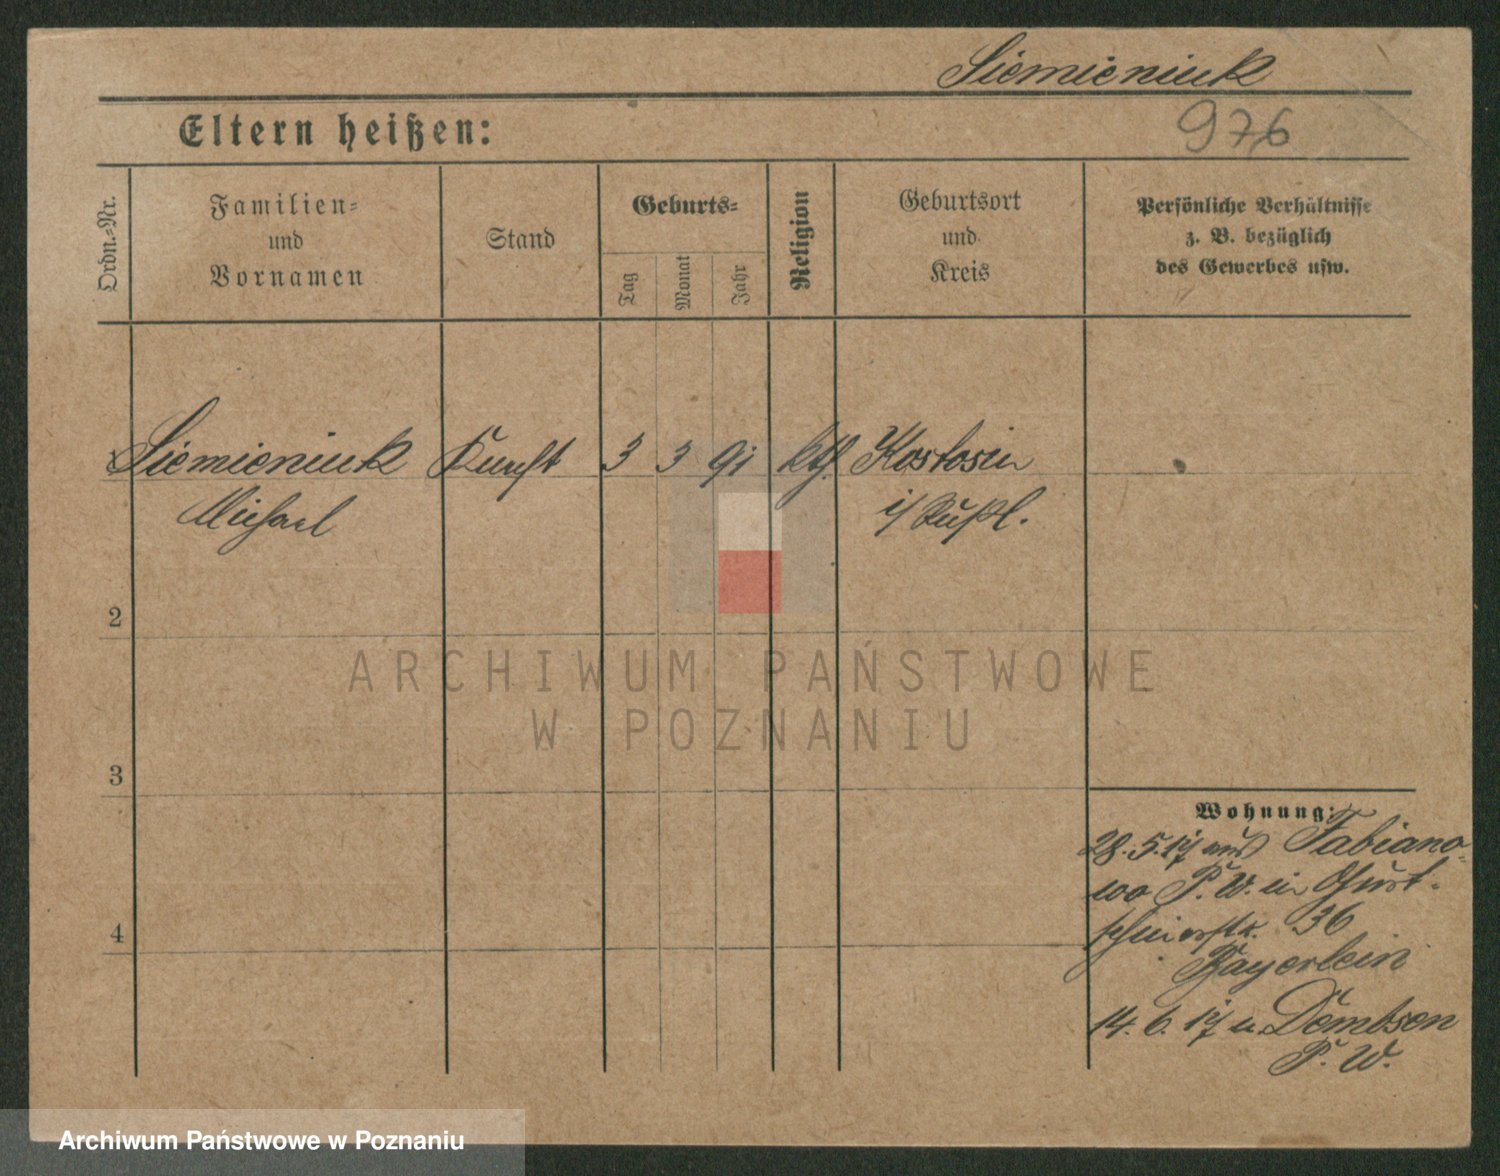 Siemieniuk
976
Eltern heißen:
Ordn.-Nr.
Familien-
und
Vornamen
Stand
Geburts-
Tag
Monat
Jahr
Religion
Geburtsort
und
Kreis
Persönliche Verhältnisse
z. B. bezüglich
des Gewerbes usw.
1 Siemieniuk 3 3 91 kth. Kostosin
Michael i/Rußl.
2
ARCHIWUM PAŃSTWOWE
W POZNANIU
3
Wohnung:
28.5.17 aus Fabiano-
wo P. W. in Gurt-
schinerstr. 36
Bayerlein
4
14.6.17 n. Dembsen
P. W.
Archiwum Państwowe w Poznaniu